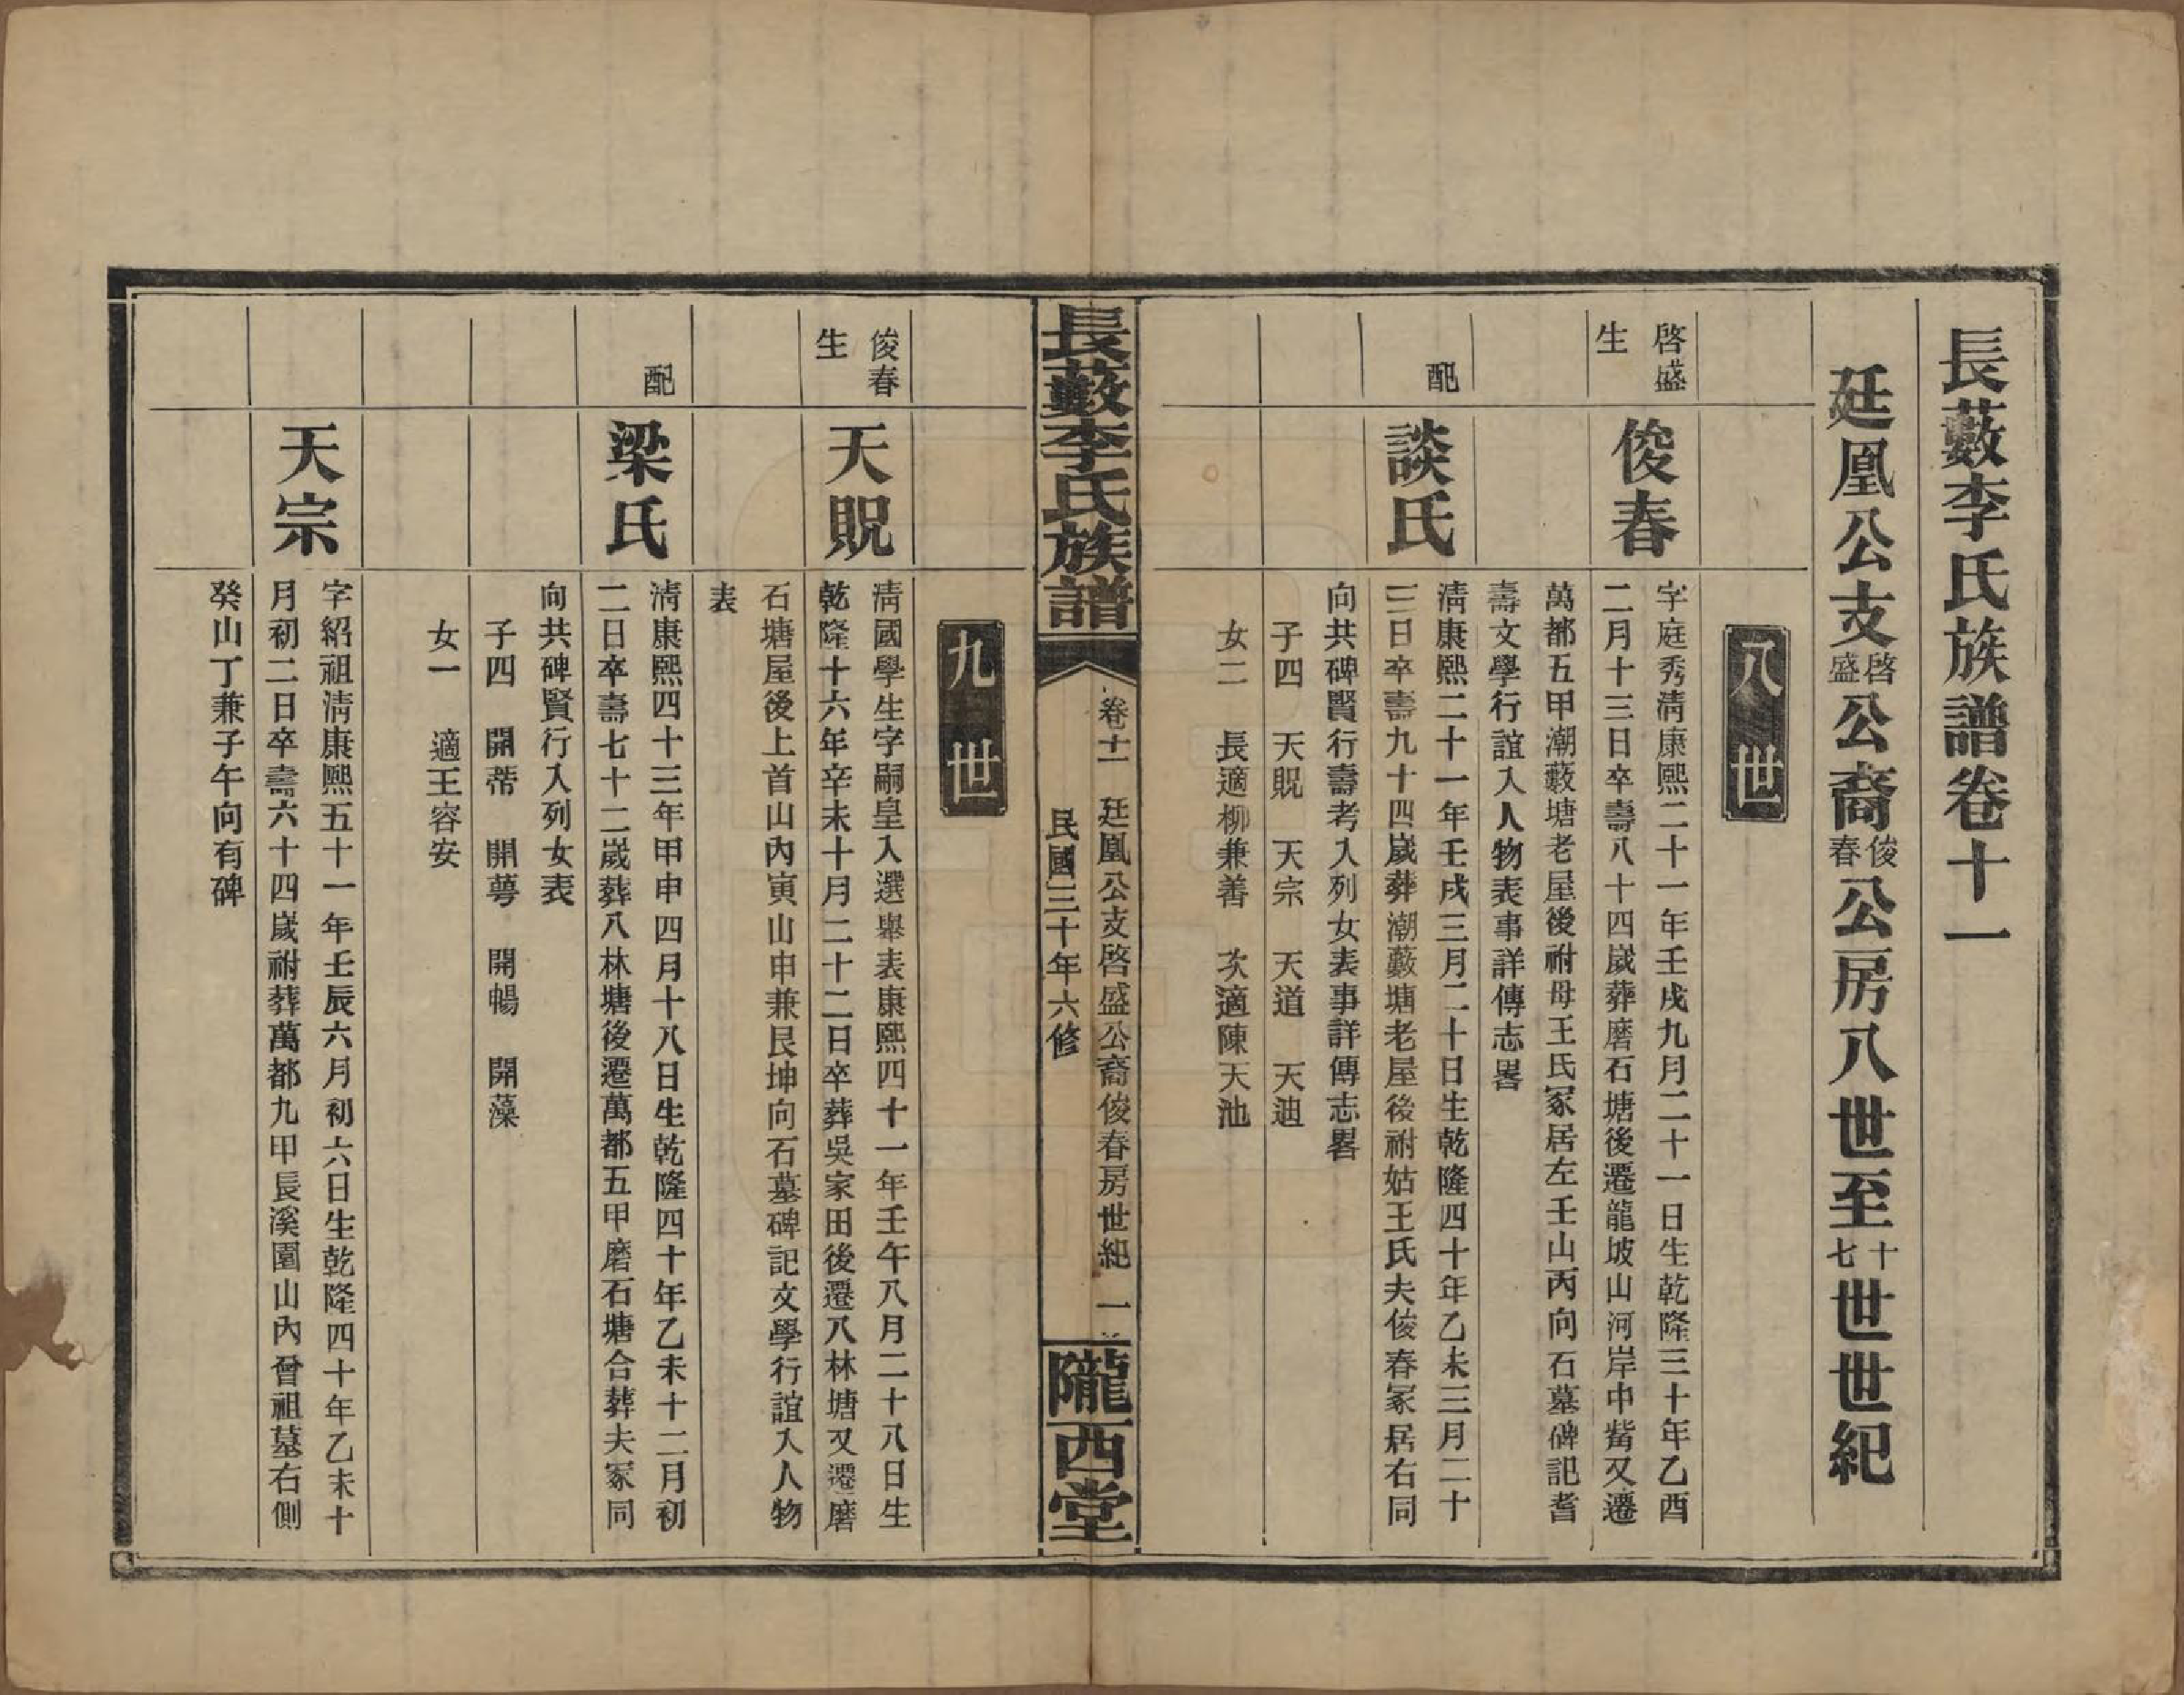 長藪李氏族譜卷十一
廷凰公支啓盛公裔俊春公房八世至十七世世紀
八世
啓盛生
俊春
字庭秀淸康熙二十一年壬戌九月二十一日生乾隆三十年乙酉
二月十三日卒壽八十四歲葬磨石塘後遷龍坡山河岸中嘴又遷
萬都五甲潮藪塘老屋後祔母王氏冢居左壬山丙向石墓碑記耆
壽文學行誼入人物表事詳傳志畧
配
談氏
淸康熙二十一年壬戌三月二十日生乾隆四十年乙未三月二十
三日卒壽九十四歲葬潮藪塘老屋後祔姑王氏夫俊春冢居右同
向共碑賢行壽考入列女表事詳傳志畧
子四 天貺 天宗 天道 天迪
女二 長適柳兼善 次適陳天池
長藪李氏族譜
卷十一 廷凰公支啓盛公裔俊春房世紀 一
民國三十年六修
隴西堂
九世
俊春生
天貺
淸國學生字嗣皇入選舉表康熙四十一年壬午八月二十八日生
乾隆十六年辛未十月二十二日卒葬吳家田後遷八林塘又遷磨
石塘屋後上首山內寅山申兼艮坤向石墓碑記文學行誼入人物
表
配
梁氏
淸康熙四十三年甲申四月十八日生乾隆四十年乙未十二月初
二日卒壽七十二歲葬八林塘後遷萬都五甲磨石塘合葬夫冢同
向共碑賢行入列女表
子四 開蒂 開蕚 開暢 開藻
女一 適王容安
天宗
字紹祖淸康熙五十一年壬辰六月初六日生乾隆四十年乙未十
月初二日卒壽六十四歲祔葬萬都九甲長溪園山內晉祖墓右側
癸山丁兼子午向有碑